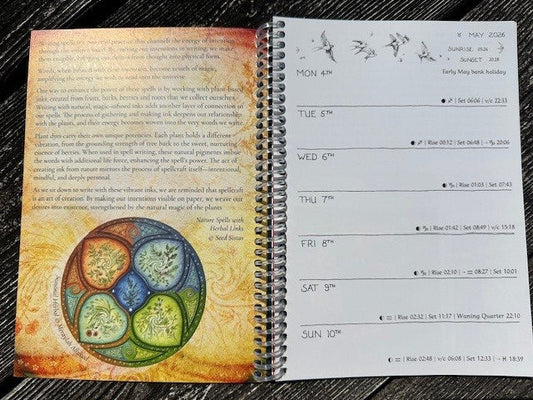 writing spells is a powerful practice that channels the energy of intention
through the written word. By turning our intentions to writing, we make
them tangible, bringing our desires from thought into physical form.
Words, when infused with clear purpose, become vessels of magic,
propelling the energy we wish to send into the universe.
One way to enhance the power of these spells is by working with plant-based
inks, created from fruits, barks, berries and roots that we collect ourselves.
Writing with natural, magic-infused inks adds another layer of connection to
our spells. The process of gathering and making ink deepens our relationship
with the plants, and their energy becomes woven into the very words we write.
Plant dyes carry their own unique potencies. Each plant holds a different
vibration, from the grounding strength of tree bark to the sweet, nurturing
essence of berries. When used in spell writing, these natural pigments imbue
the words with additional life force, enhancing the spell's power. The act of
creating ink from nature mirrors the process of spellcraft itself—intentional,
mindful, and deeply personal.
As we sit down to write with these vibrant inks, we are reminded that spellcraft
is an art of creation. By making our intentions visible on paper, we weave our
desires into existence, strengthened by the natural magic of the plants
Nature Spells with
Herbal Links
© Seed Sistas
♉ MAY 2026
SUNRISE 05:26
SUNSET 20:28
MON 4TH
Early May bank holiday
♐ | Set 06:06 | v/c 22:33
TUE 5TH
♐ | Rise 00:12 | Set 06:48 | → ♑ 20:06
WED 6TH
♑ | Rise 01:03 | Set 07:43
THUR 7TH
♑ | Rise 01:42 | Set 08:49 | v/c 15:18
FRI 8TH
♑ | Rise 02:10 | → ♒ 08:27 | Set 10:01
SAT 9TH
♒ | Rise 02:32 | Set 11:17 | Waning Quarter 22:10
SUN 10TH
♒ | Rise 02:48 | v/c 06:08 | Set 12:33 | → ♓ 18:39